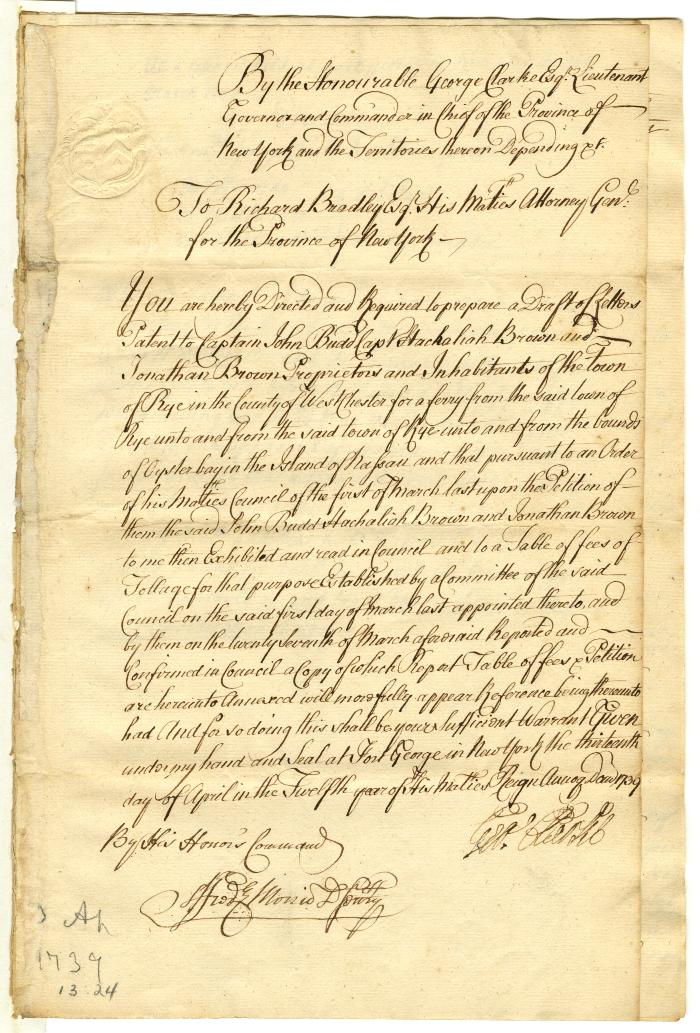 By the Honourable George Clarke Esqr. Lieutenant
Governor and Commander in Chief of the Province of
New York and the Territories thereon Depending &c.
To Richard Bradley Esqr. His Maties Attorney Genl.
for the Province of New York
You are hereby Directed and Required to prepare a Draft of Letters
Patent to Captain John Budd Capt Hachaliah Brown and
Jonathan Brown Proprietors and Inhabitants of the Town
of Rye in the County of WestChester for a ferry from the said town of
Rye unto and from the said town of Rye unto and from the bounds
of Oysterbay in the Island of Nassau and that pursuant to an Order
of his Maties Council of the first of March last upon the Petition of
them the said John Budd Hachaliah Brown and Jonathan Brown
to me then Exhibited and read in Council and to a Table of fees of
Tollage for that purpose Established by a Committee of the said
Council on the said first day of March last appointed thereto, and
by them on the twenty seventh of March aforesaid Reported and
Confirmed in Council a Copy of which Report Table of fees & Petition
are hereunto Annexed will more fully appear Reference being thereunto
had And for so doing this shall be your sufficient Warrant Given
under my hand and Seal at Fort George in New York the thirteenth
day of April in the Twelfth year of His Maties Reign Annoq Dom 1739
Geo. Clarke
By His Honour's Command
Fredk. Morris D Secry
Ap
1739
13 24